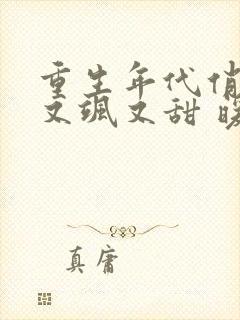 重生年代俏
又飒又甜 暖
真庸